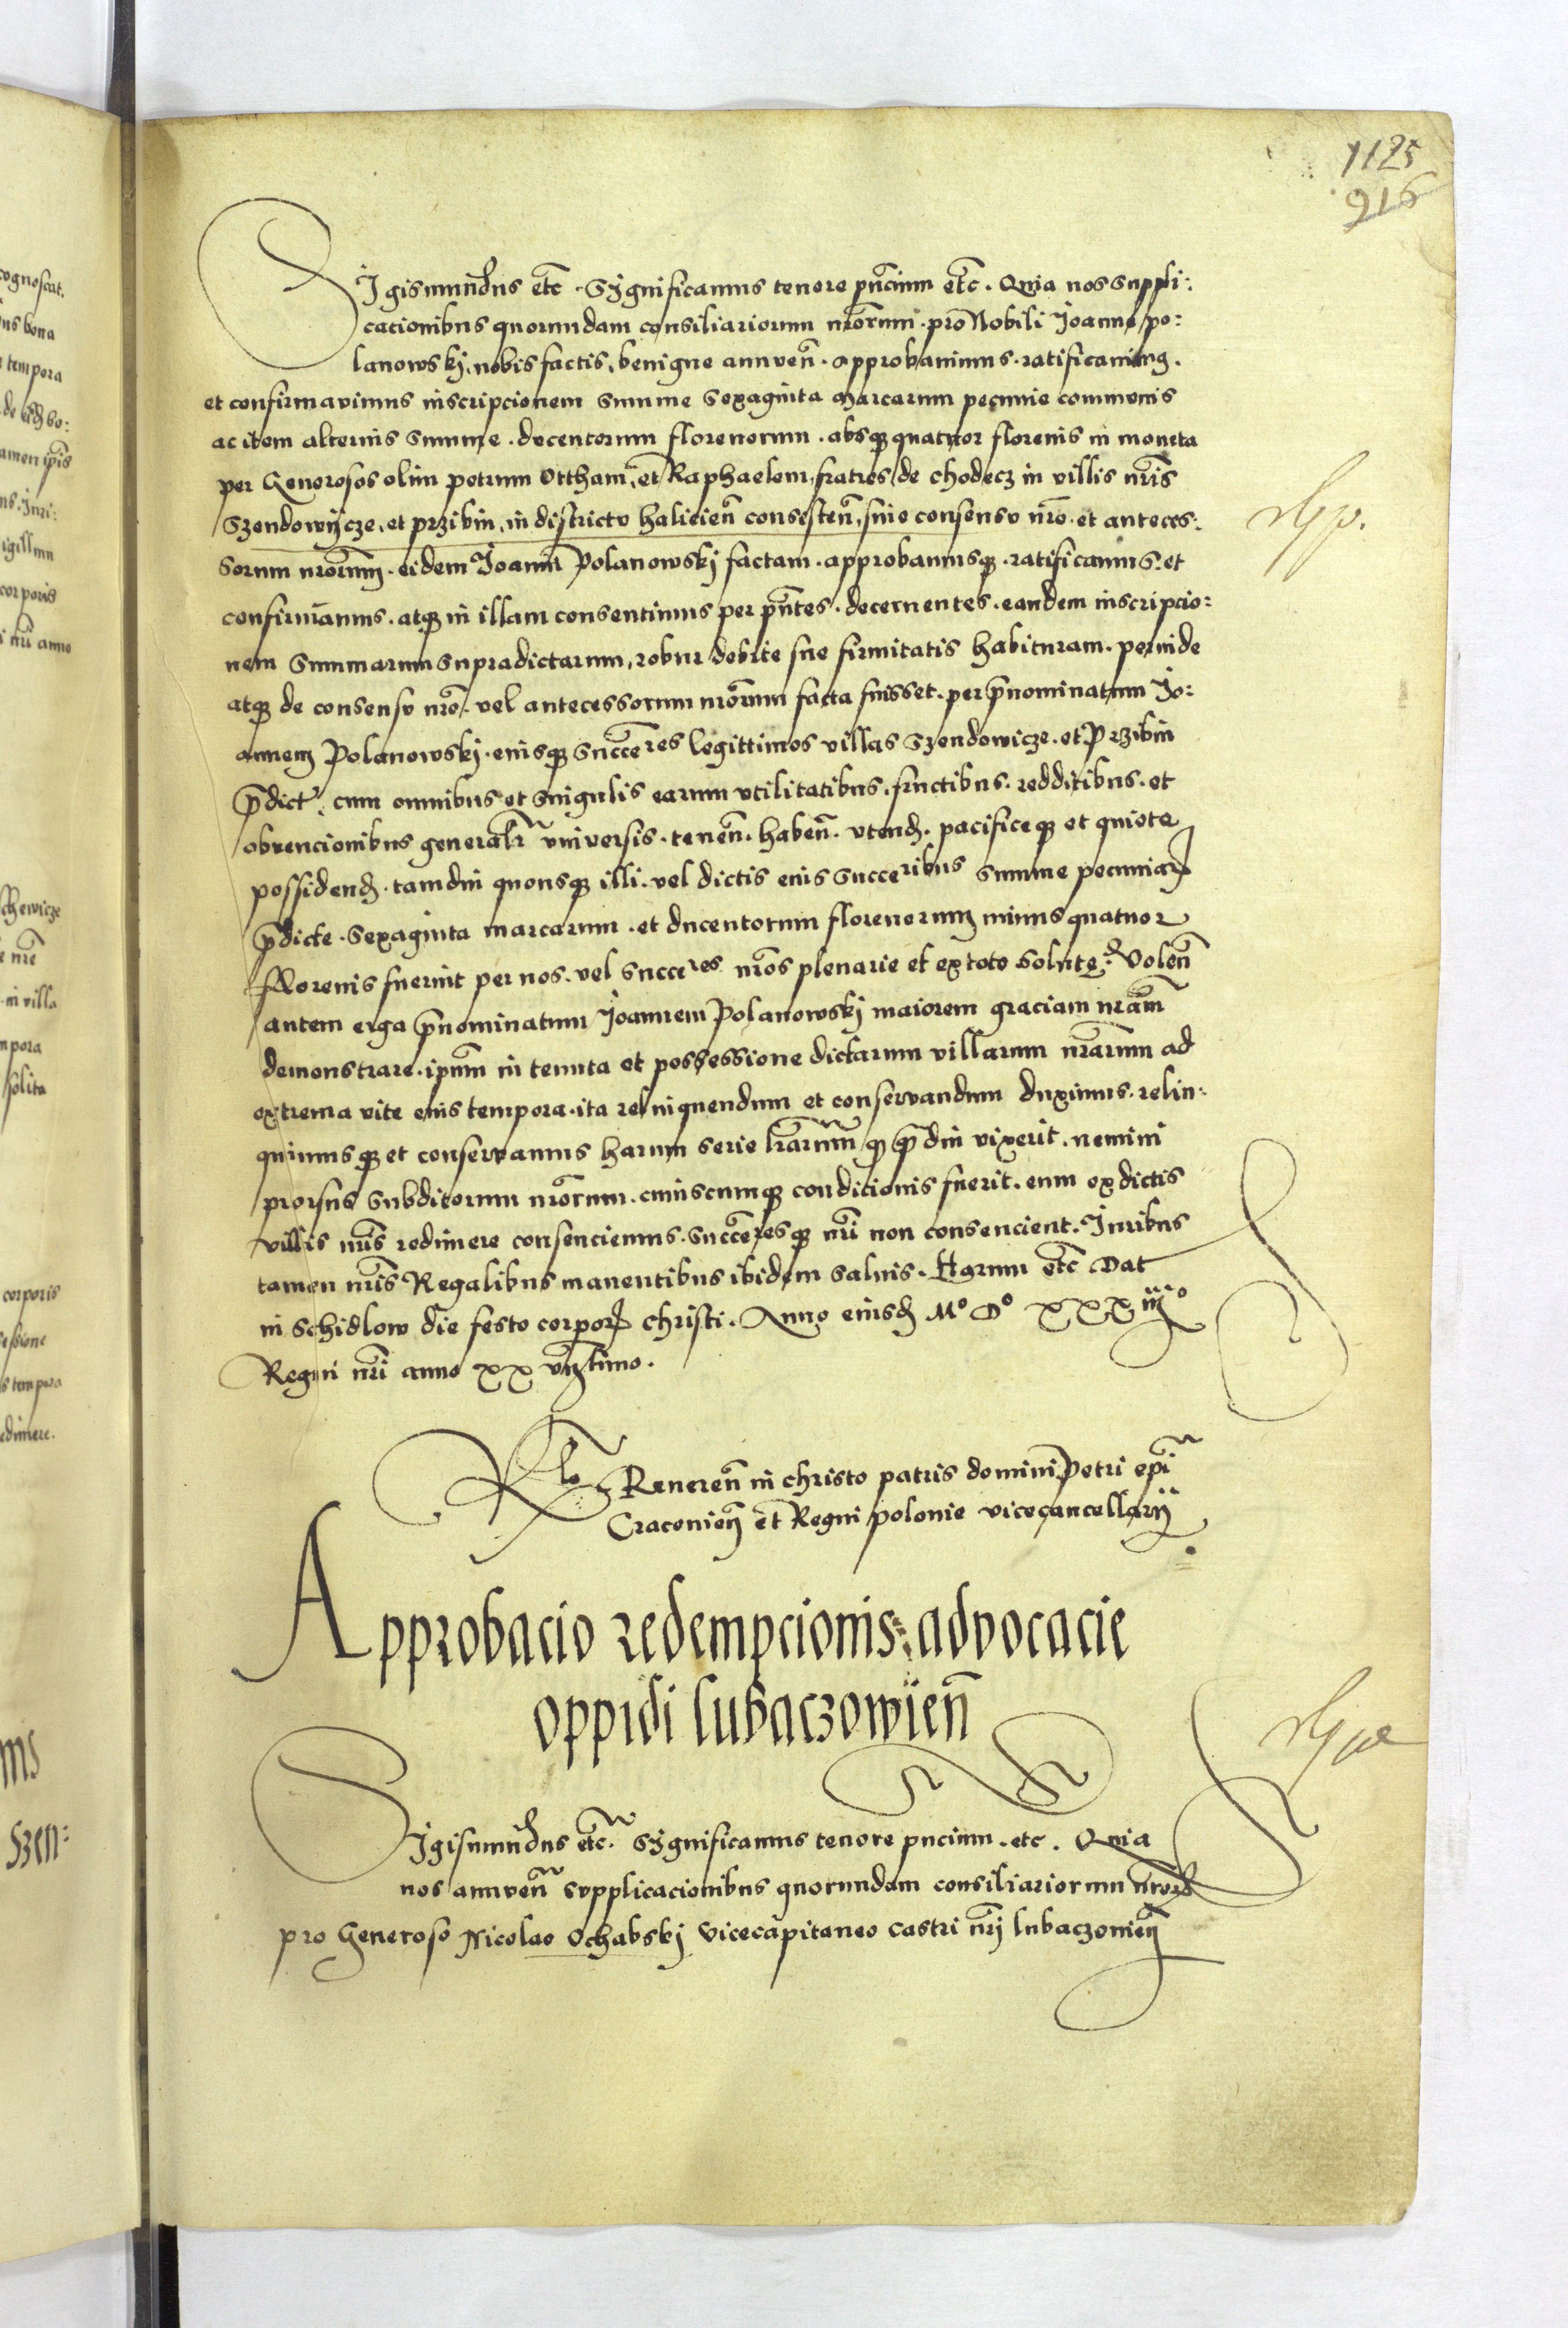 1125
916
Sigismundus etc. Significamus tenore pncium etc. Quia nos suppli:
cacionibus quorundam consiliariorum nrorum pro Nobili Joanne po:
lanowskj nobis factis, benigne annuen. approbavimus. ratificavimus.
et confirmavimus inscripcionem summe sexaginta marcarum pecunie communis
ac item alterius summe. ducentorum florenorum. absque quatuor florenis in moneta
per Generosos olim petrum Ottham, et Raphaelem, fratres de Chodecz in villis nris
Szendowijcze, et przibin, in districtu halicien consisten, sine consensu nro. et anteces:
sorum nrorum. eidem Joanni Polanowskj factam. approbamusque. ratificamus. et
confirmamus. atque in illam consentimus per pntes. decernentes. eandem inscripcio:
nem summarum supradictarum, robur debite sue firmitatis habituram. perinde
atque de consensu nro. vel antecessorum nrorum facta fuisset. per prenominatum Jo:
annem Polanowskj. eiusque succeres legittimos villas Szendowicze. et Przibin
predict. cum omnibus et singulis earum utilitatibus. fructibus. redditibus. et
obvencionibus generalr universis. tenen. haben. utend. pacificeque et quiete
possidend. tamdiu quousque illi. vel dictis eius succeribus summe pecuniar
predicte. sexaginta marcarum. et ducentorum florenorum minus quatuor
florenis fuerint per nos. vel succeres nros plenarie et ex toto solute. Volen
autem erga prenominatum Joannem Polanowskj maiorem graciam nram
demonstrare. ipsum in tenuta et possessione dictarum villarum nrarum ad
extrema vite eius tempora. ita relinquendum et conservandum duximus. relin:
quimusque et conservamus harum serie lrarum quod quamdiu vixerit. nemini
prorsus subditorum nrorum. cuiuscumque condicionis fuerit. eum ex dictis
villis nris redimere consenciemus. succeresque nri non consencient. Juribus
tamen nris Regalibus manentibus ibidem salvis. Harum etc Dat
in Schidlow die festo corporis christi. Anno eiusd Mo Do xxxiijo
Regni nri anno xx
Rlo Reveren in christo patris domini Petri epi
Cracovien et Regni polonie vicecancellarij
Approbacio redempcionis advocacie
oppidi lubaczowien
Sigismundus etc. Significamus tenore pncium. etc. Quia
nos annuen supplicacionibus quorundam consiliariorum nrorum
pro Generoso Nicolao Ochabskj vicecapitaneo castri nrj lubaczovien